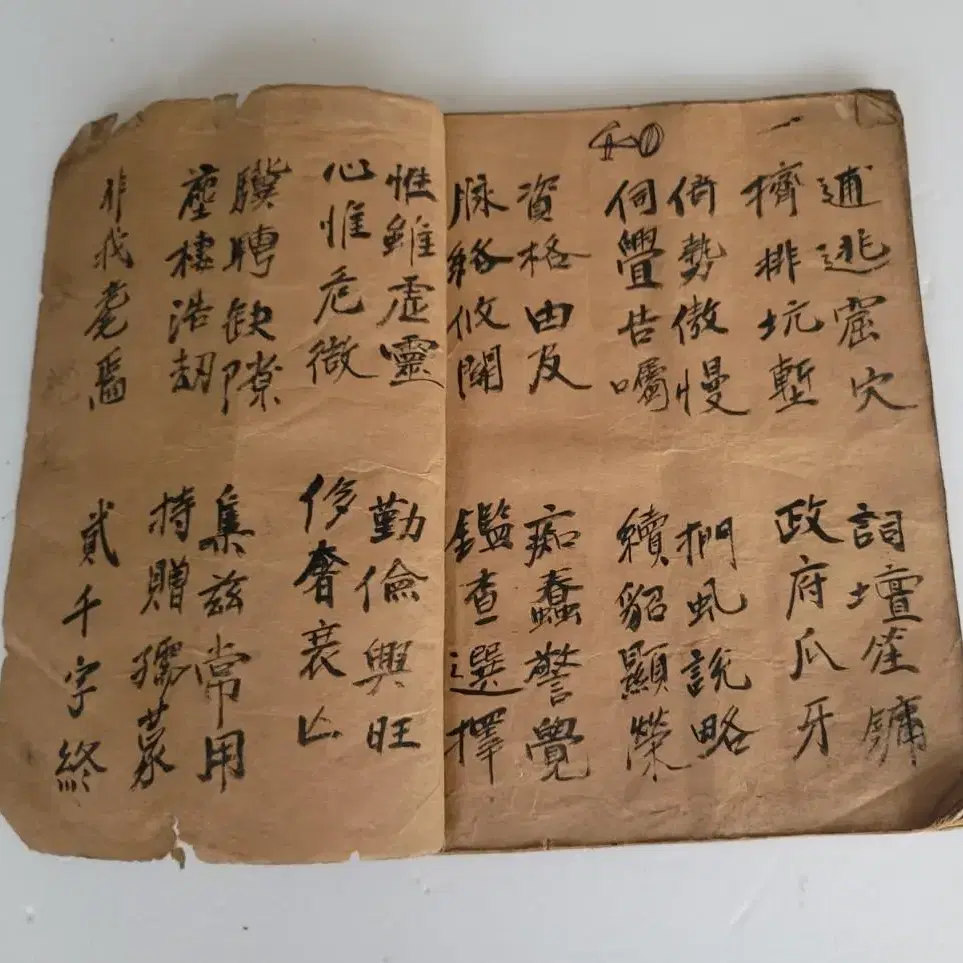 逋逃窟穴 詞壇笙鏞
擠排坑塹 政府爪牙
倚勢傲慢 捫虱説略
伺釁告囑 續貂顯榮
資格由及 痴蠢警覺
脉絡攸關 鑑查選擇
惟雖虛靈 勤儉興旺
心惟危微 侈奢衰亡
驥騁缺隙 集茲常用
塵棲浩劫 持贈孺蒙
非我耄焉 貳千字終